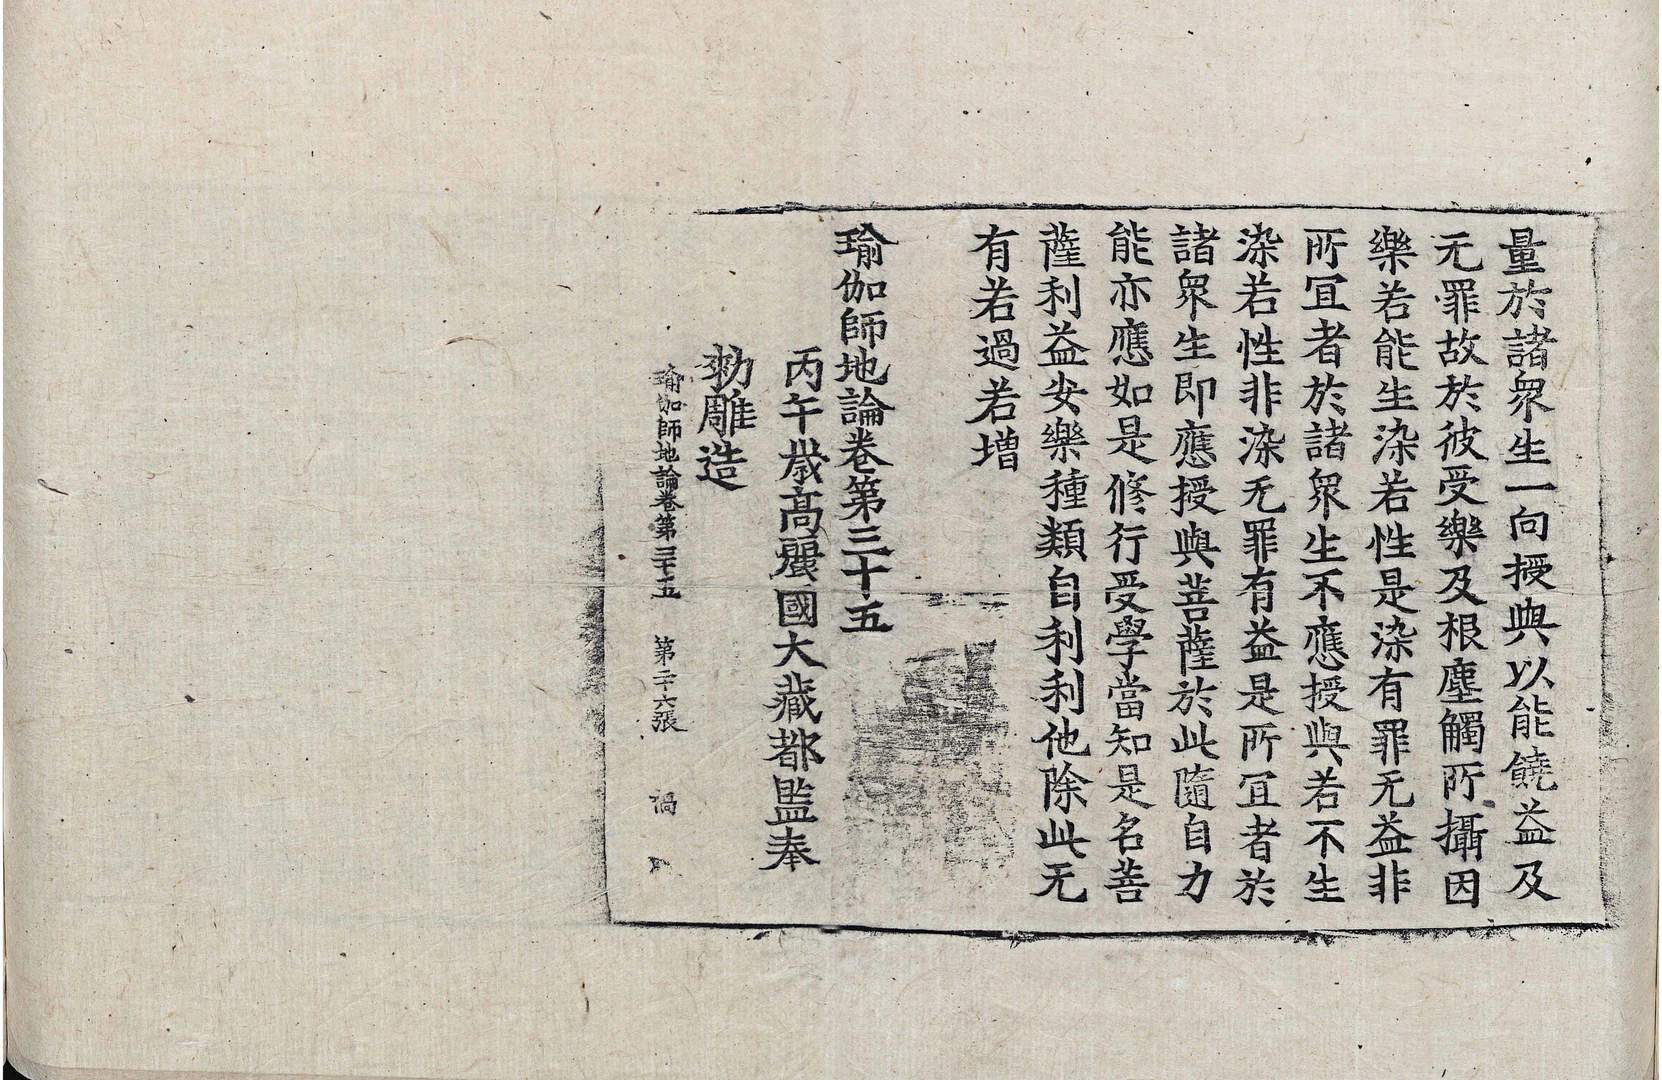 量於諸衆生一向授與以能饒益及
无罪故於彼受樂及根塵觸所攝因
樂若能生染若性是染有罪无益非
所冝者於諸衆生不應授與若不生
染若性非染无罪有益是所冝者於
諸衆生即應授與菩薩於此隨自力
能亦應如是修行受學當知是名菩
薩利益安樂種類自利利他除此无
有若過若増
瑜伽師地論卷第三十五
丙午歲高麗國大藏都監奉
勑雕造
瑜伽師地論卷第三十五 第二十六張 禍